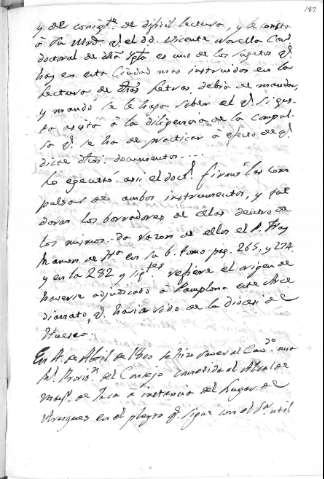 187
y de consigte. de dificil lectura, y le consta
á su Md. q. el Dr. Vicente Novella Can
doctoral de dha Ygla. es uno de los sugetos q.
hay en esta Ciudad mas instruidos en la
lectura de dhas letras, debia de mandar,
y mandó se le haga saber el q. si gus-
ta asista á la diligencia de la compul-
sa q. se ha de practicar á efecto de q.
dicte dhos. documentos...
Lo egecutó así el doctl. firmó las com
pulsas de ambos instrumentos, y que
daron los borradores de ellas dentro de
los mismos. da razon de ellos el P. Fray
Ramon de Ha. en su 6. tomo pag. 265, y 274
y en la 232 y sigtes refiere el origen de
haverse adjudicado á Pamplona este Arce
dianato, q. havia sido de la diocesi de
Huesca.
En 11. de Abril de 1800 se hizo saver al Cavdo. una
Rl. Provin. del Consejo cometida al Alcalde
mayr. de Jaca á instancia del Lugar de
en el pleyto q. sigue con el Sr. util